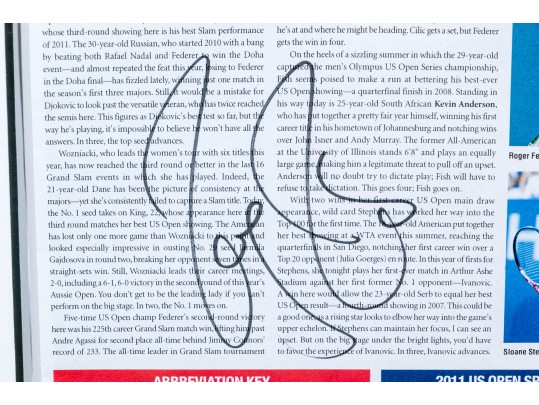 whose third-round showing here is his best Slam performance
of 2011. The 30-year-old Russian, who started 2010 with a bang
by beating both Rafael Nadal and Federer to win the Doha
event—and almost repeated the feat this year, losing to Federer
in the Doha final—has fizzled lately, winning just one match in
the season's first three majors. Still, it would be a mistake for
Djokovic to look past the versatile veteran, who has twice reached
the semis here. This figures as Djokovic's best test so far, but the
way he's playing, it's impossible to believe he won't have all the
answers. In three, the top seed advances.
Wozniacki, who leads the women's tour with six titles this
year, has now reached the third round or better in the last 16
Grand Slam events in which she has played. Indeed, the
21-year-old Dane has been the picture of consistency at the
majors—yet she's consistently failed to capture a Slam title. Today,
the No. 1 seed takes on King, 22, whose appearance here in the
third round matches her best US Open showing. The American
has lost only one more game than Wozniacki to this point and
looked especially impressive in ousting No. 29 seed Jarmila
Gajdosova in round two, breaking her opponent seven times in a
straight-sets win. Still, Wozniacki leads their career meetings,
2-0, including a 6-1, 6-0 victory in the second round of this year's
Aussie Open. You don't get to be the leading lady if you can't
perform on the big stage. In two, the No. 1 moves on.
Five-time US Open champ Federer's second-round victory
here was his 225th career Grand Slam match win, lifting him past
Andre Agassi for second place all-time behind Jimmy Connors'
record of 233. The all-time leader in Grand Slam tournament
he's at and where he might be heading. Cilic gets a set, but Federer
gets the win in four.
On the heels of a sizzling summer in which the 29-year-old
captured the men's Olympus US Open Series championship,
Fish seems poised to make a run at bettering his best-ever
US Open showing—a quarterfinal finish in 2008. Standing in
his way today is 25-year-old South African Kevin Anderson,
who has put together a pretty fair year himself, winning his first
career title in his hometown of Johannesburg and notching wins
over John Isner and Andy Murray. The former All-American
at the University of Illinois stands 6'8" and plays an equally
large game, making him a legitimate threat to pull off an upset.
Anderson will no doubt try to dictate play; Fish will have to
refuse to take dictation. This goes four; Fish goes on.
With two wins in her first career US Open main draw
appearance, wild card Stephens has worked her way into the
Top 100 for the first time. The 18-year-old American put together
her best showing at a WTA event this summer, reaching the
quarterfinals in San Diego, notching her first career win over a
Top 20 opponent (Julia Goerges) en route. In this year of firsts for
Stephens, she tonight plays her first-ever match in Arthur Ashe
Stadium against her first former No. 1 opponent—Ivanovic.
A win here would allow the 23-year-old Serb to equal her best
US Open result—a fourth-round showing in 2007. This could be
a good one, as a rising star looks to elbow her way into the game's
upper echelon. If Stephens can maintain her focus, I can see an
upset. But on the big stage under the bright lights, you'd have
to favor the experience of Ivanovic. In three, Ivanovic advances.
Roger Fe
Sloane Ste
ABBREVIATION KEY
2011 US OPEN SP